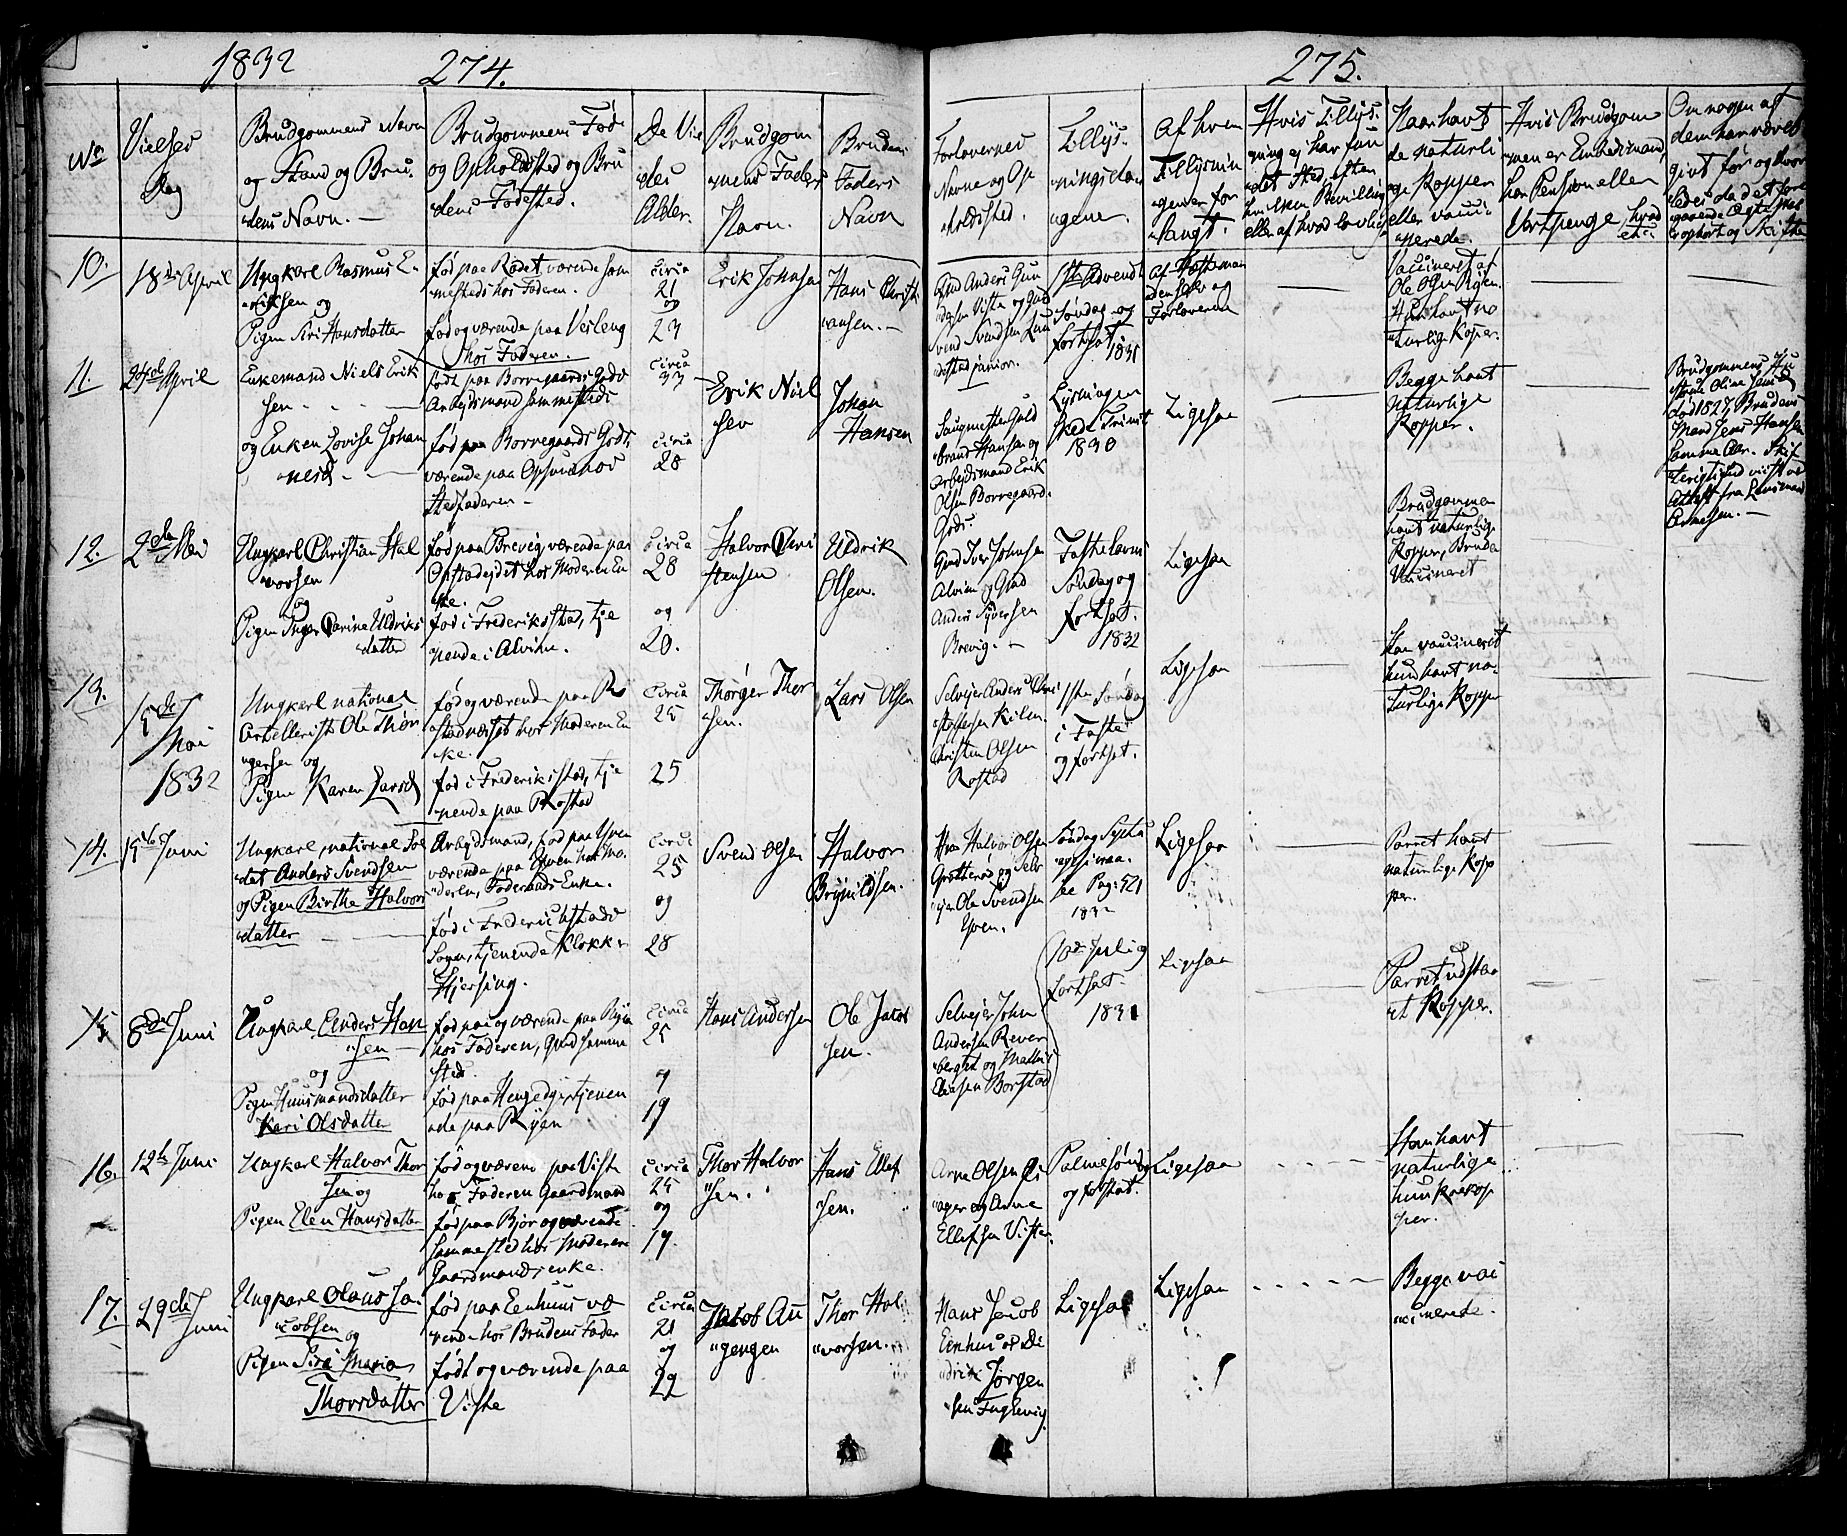 1832
274.
275.
No
Vielses
Dag
Brudgommens Navn
og Stand og Bru-
dens Navn. —
Brudgommens Fød
og Opholdsted og Bru
dens Fødested.
De Vie
des
Alder.
Brudgom
mens Faders
Navn.
Brudens
Faders
Navn
Forlovernes
Navne og Op
holdsted.
Tillys-
ningsda
gene.
Af hvem
Tillysnin
gen er for
langt.
Hvis Tillys-
ning ej har fun
det Sted, efter
hvilken Bevilling
eller af hvad lovlig
Naar havt
de naturli
ge Kopper
eller vacci-
nerede.
Hvis Brudgom
men er Enkemand,
har Pension eller
Vartpenge, hvad
etc:
Om nogen af
dem har været
givt før og hvor
ledes da det fore
gaaende Ægteskab
er ophørt og Skifte
10.
18de April
Ungkarl Rasmus E-
riksen og
Pigen Siri Hansdatter
fød paa Rødet, værende sam
mesteds hos Faderen.
fød og værende paa Visleng
hos Faderen.
circa
21
og
23
Erik Johnsen
Hans Christi
ansen. —
Gmd Anders Gun
dersen Viste og Gmd
Svend Svendsen
junior.
1ste Advent
Søndag og
fortsat
1831
Forloverne
Vaccineret af
Ole Olsen
Hun havt na
turlige Koper.
11.
24de April
Enkemand Niels Erik
sen
og Enken Lovise Johan
nesd
født paa Borregaards Gods
Arbejdsmand sammesteds
fød paa Borregaards Gods
værende paa Opsund hos
Stedfaderen —
circa
33
circa
28
Erik Niel
sen
Johan
Hansen
Saugmester Guld
brand Hansen og
Arbejdsmand Erik
Olsen Borregaard
Gods
Lysningen
skede Trinit
1830
Ligesaa
Begge havt
naturlige
Kopper.
Brudgommens Hu
strue Oline
død 1827, Brudens
Mand Jens Hansen
samme Aar. Skif
terigtighed viist ved
Attest fra Lensmand
Arnesen. —
12.
2den Mai
Ungkarl Christian Hal
vorsen
og
Pigen Inger Carine Uldriks
datter
fød paa Brevig, værende paa
Opstadejdet hos Moderen En
ke.
fød i Frederikstad, tje
nende i Alvim.
circa
28
og
20.
Halvor Chri
stensen
Uldrik
Olsen.
Gmd Iver Johnsen
Alvim og Gmd
Anders Syversen
Brevig. —
Fastelavns
Søndag og
fortsat.
1832
Ligesaa
Brudgommen
havt naturlige
Kopper, Bruden
Vaccineret
13.
15de
Mai
1832
Ungkarl national
Artillerist Ole Thor
gersen og
Pigen Karen Larsd
fød og værende paa Ro
stad næset hos Moderen En
ke.
fød i Frederikstad, tje
nende paa Rostad
circa
25
25
Thorger Thor
sen.
Lars Olsen
Selvejer Anders Chri
stophersen Kilen.
Christen Olsen
Rostad
1ste Søndag
i Faste
og fortset.
Ligesaa
Han vaccineret
hun havt na-
turlige Kopper
14.
15de Juni
Ungkarl national Sol
dat Anders Svendsen
og Pigen Birthe Halvors
datter
Arbejdsmand, fød paa Yven
værende paa Yven hos Mo
deren, Gaardmands Enke.
fød i Fredericksstad
Sogn, tjenende Klokker
Hjersing.
circa
25
og
28
Svend Olsen
Halvor
Brynildsen.
Hans Halvor Olsen
Grøtterød og Selv
ejer Ole Svendsen
Yven.
Søndag Septu
agesima.
See Pag: 521
1832
Ligesaa
Parret havt
naturlige Kop
per.
15
8de Juni
Ungkarl Anders Han
sen
og
Pigen Huusmandsdatter
Kari Olsdatter
fød paa og værende paa Ryen
hos Faderen, Gmd samme
sted.
fød paa Hengedejet tjenen
de paa Ryen
circa
25
og
19
Hans Andersen
Ole Jacob
sen.
Selvejer John
Andersen Rever
berget og Mathis
Olsen Borstad
10de Julig
fortsat.
1831
Ligesaa
Parret udstaa
et Kopper.
16.
12te Juni
Ungkarl Halvor Thor
sen og
Pigen Elen Hansdatter
fød og værend paa Viste
hos Faderen Gaardmand
fød paa Bjør og værende
sammested hos Moderen
Gaardmands enke.
circa
25
og
19.
Thor Halvor
sen.
Hans Ellef
sen.
Arne Olsen Ei
ager og Arne
Ellefsen Visten.
Palmesøndag
og fortsat.
Ligesaa
Han havt
naturlige
hun Kokop
per.
17.
29de
Juni
Ungkarl Olaus Ja
cobsen
og
Pigen Siri Maria
Thorsdatter
fød paa Eenhuus væ
rende hos Brudens Fader
født og værende paa
Viste
circa
21
og
22
Jacob Au
gengen
Thor Hal
vorsen.
Hans Jacob
Eenhuus og Di
drik Jørgen
sen Fuglevig
Ligesaa
Ligesaa
Begge vac
cinerede.